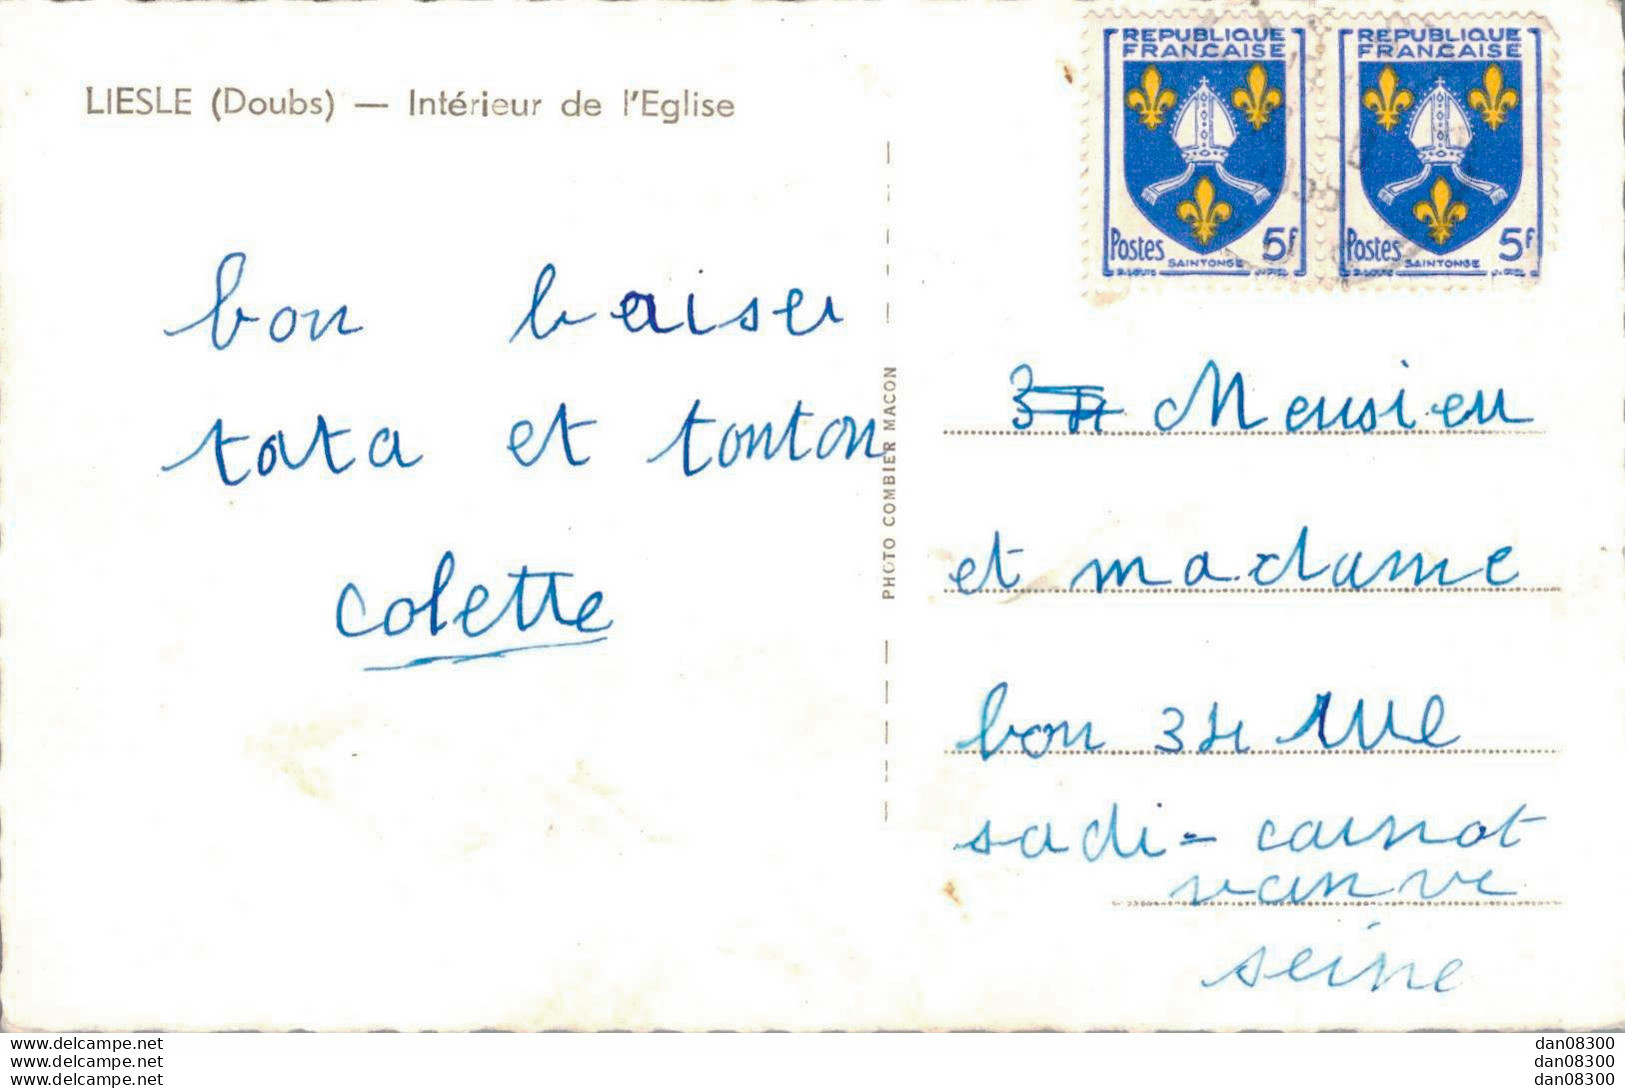 LIESLE (Doubs) — Intérieur de l'Eglise
bon baiser
tata et tonton
colette
PHOTO COMBIER MACON
REPUBLIQUE
FRANÇAISE
Postes 5f
SAINTONGE
REPUBLIQUE
FRANÇAISE
Postes 5f
SAINTONGE
Meusieu
et madame
bon 34 rue
sadi-carnot
vanve
seine
www.delcampe.net
www.delcampe.net
www.delcampe.net
dan08300
dan08300
dan08300